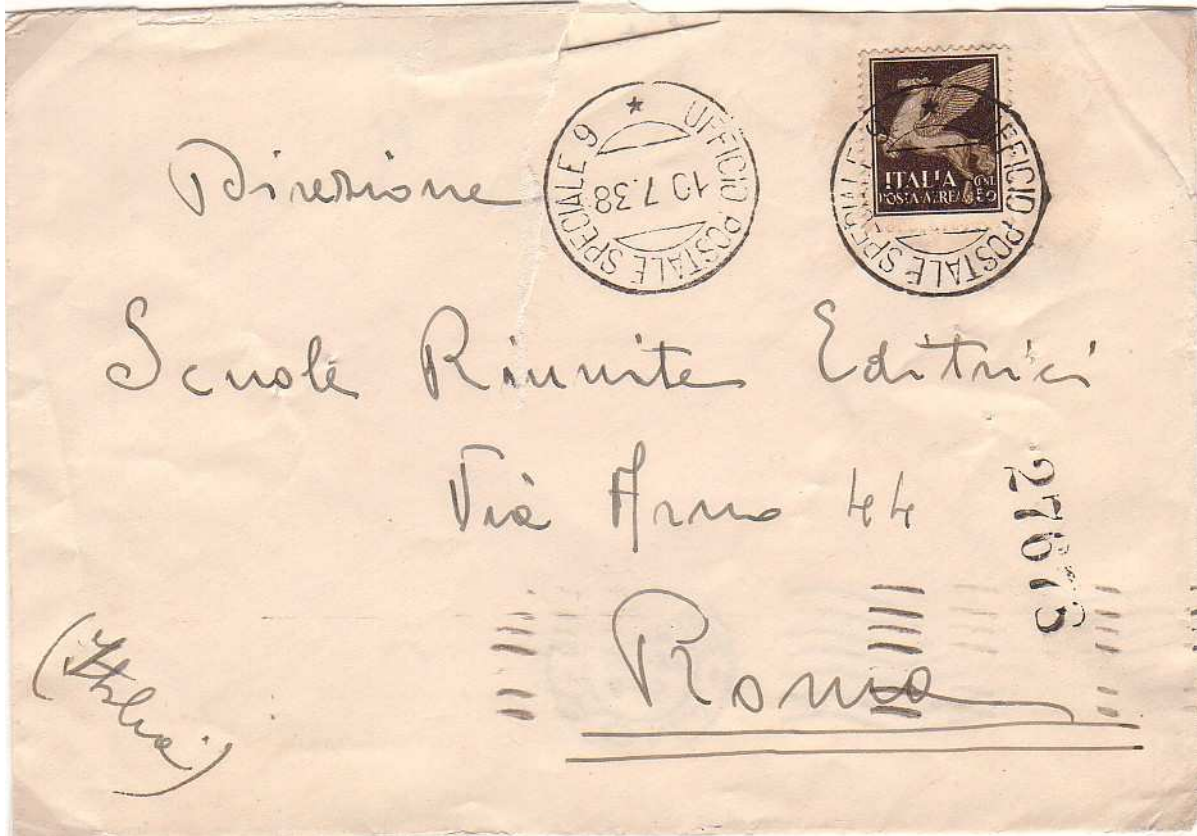 UFFICIO POSTALE SPECIALE 9
10.7.38
UFFICIO POSTALE SPECIALE 9
ITALIA
POSTA AEREA
CENT. 50
Direzione
Scuole Riunite Editrici
Via Arno 44
27675
Roma
(Italia)